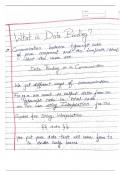 What is Data Binding?
Communication between Typescript code
of your component and the template which
that the user see.
Data Binding is a Communication
We get different ways of communication.
we need to output data from
Typescript code in html code
We can use String Interpolation for this
for String Interpolation
{{ data }}
You put your data that will come from ts
in double curly braces